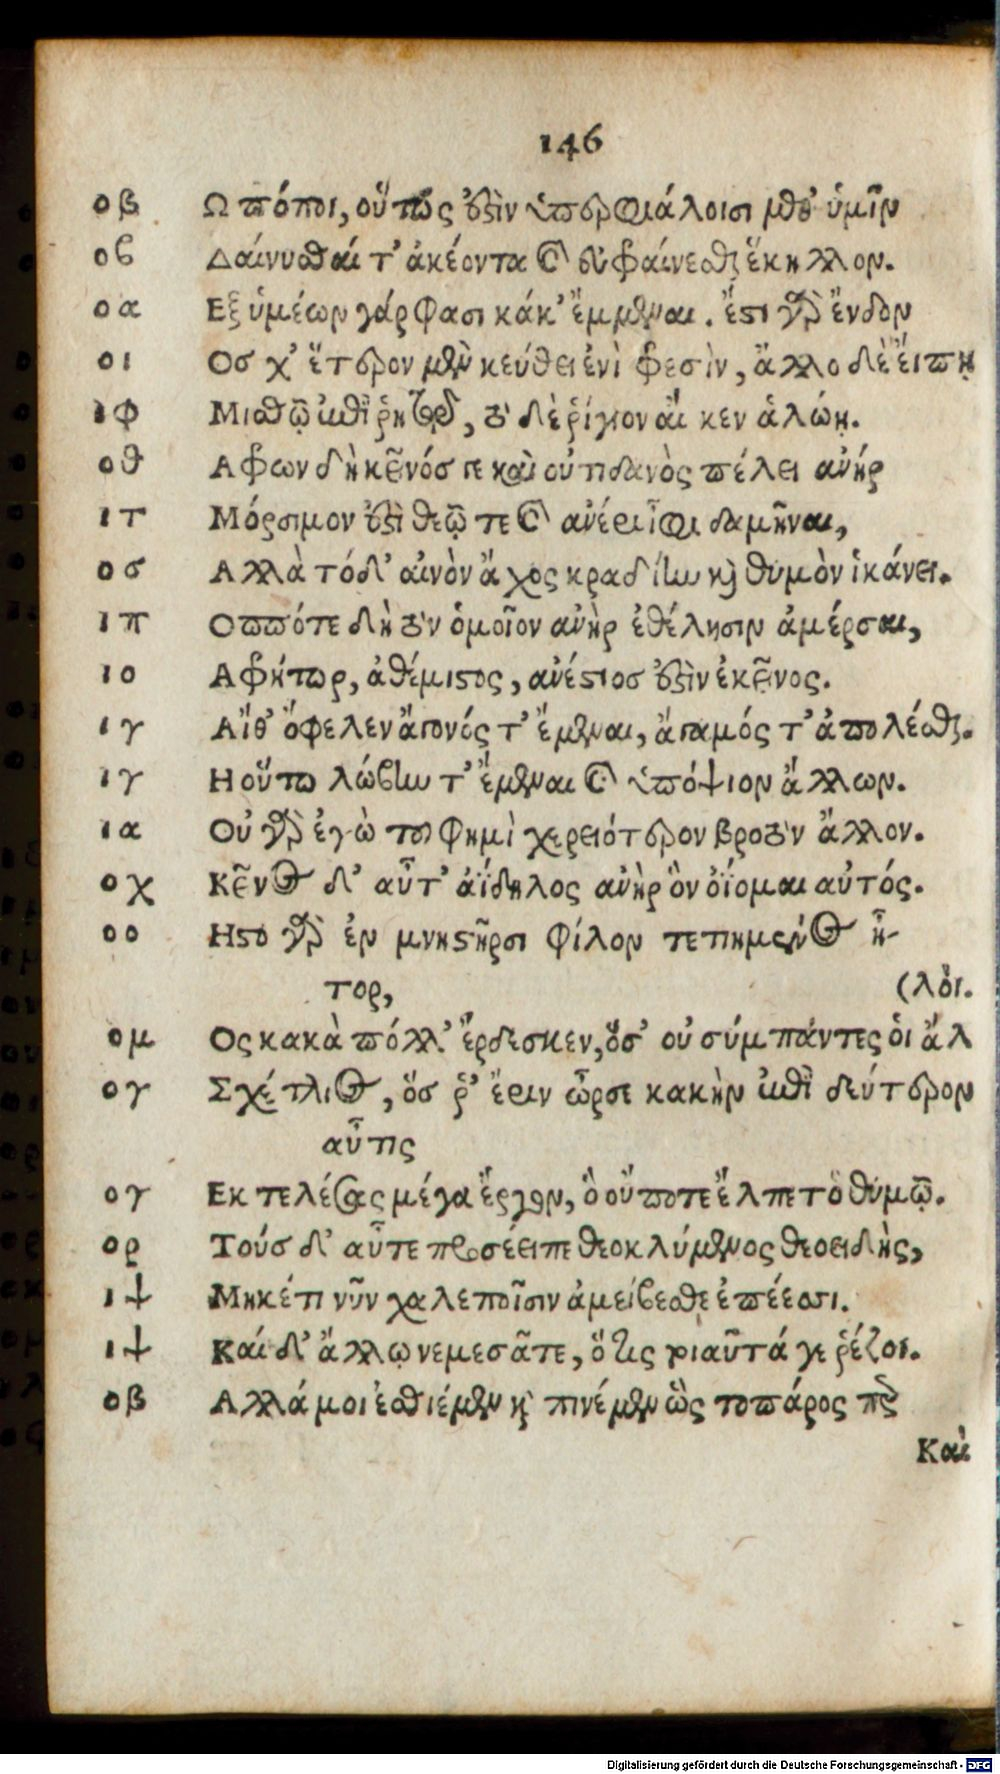 146
οβ Ω πόποι, οὔπως ἐστὶν ὑπερφιάλοισι μεθ' ὑμῖν
οβ Δαίνυσθαί τ' ἀκέοντα καὶ εὐφαίνεσθαι ἕκηλλον.
οα Εξ ὑμέων γάρ φασι κάκ' ἔμμεναι. ἔστι γὰρ ἔνδον
οι Οσ χ' ἕτερον μὲν κεύθει ἐνὶ φρεσὶν, ἄλλο δὲ εἴπῃ
ιφ Μισθῷ ἐπὶ ῥητῷ, οὐ δὲ ῥίγιον αἴ κεν ἁλώῃ.
οθ Αφρων δὴ κεῖνός γε καὶ οὐτιδανὸς πέλει ἀνήρ
ιτ Μόρσιμον ἐστὶ θεῷ τε καὶ ἀνέρι ἶφι δαμῆναι,
οσ Αλλὰ τόδ' αἰνὸν ἄχος κραδίην καὶ θυμὸν ἱκάνει.
ιπ Οππότε δὴ οὖν ὁμοῖον ἀνὴρ ἐθέλησιν ἀμέρσαι,
ιο Αφρήτωρ, ἀθέμιστος, ἀνέστιος ἐστὶν ἐκεῖνος.
ιγ Αἴθ' ὄφελεν ἄγονός τ' ἔμεναι, ἄγαμός τ' ἀπολέσθαι.
ιγ Η οὕτω λώβην τ' ἔμεναι καὶ ὑπόψιον ἄλλων.
ια Οὐ γὰρ ἐγὼ τοῦ φημὶ χερειότερον βροτὸν ἄλλον.
οχ Κεῖνος δ' αὖτ' ἀΐδηλος ἀνὴρ ὃν ὀΐομαι αὐτός.
οο Ηστο γὰρ ἐν μνηστῆρσι φίλον τετιημένος ἦ-
τορ, (λοι.
ομ Ος κακὰ πόλλ' ἔρδεσκεν, ὅσ' οὐ σύμπάντες οἱ ἄλ
ογ Σχέτλιος, ὅσ ῥ' ἔριν ὦρσε κακὴν ἐπὶ δεύτερον
αὖτις
ογ Εκτελέσας μέγα ἔργον, ὃ οὔποτε ἔλπετο θυμῷ.
ορ Τούσ δ' αὖτε προσέειπε θεοκλύμενος θεοειδὴς,
ιψ Μηκέτι νῦν χαλεποῖσιν ἀμείβεσθε ἐπέεσσι.
ιψ Καί δ' ἄλλῳ νεμεσᾶτε, ὅτις τοιαῦτά γε ῥέζοι.
οβ Αλλά μοι ἐσθιέμεν καὶ πινέμεν ὣς τοπάρος περ
Καὶ
Digitalisierung gefördert durch die Deutsche Forschungsgemeinschaft - DFG